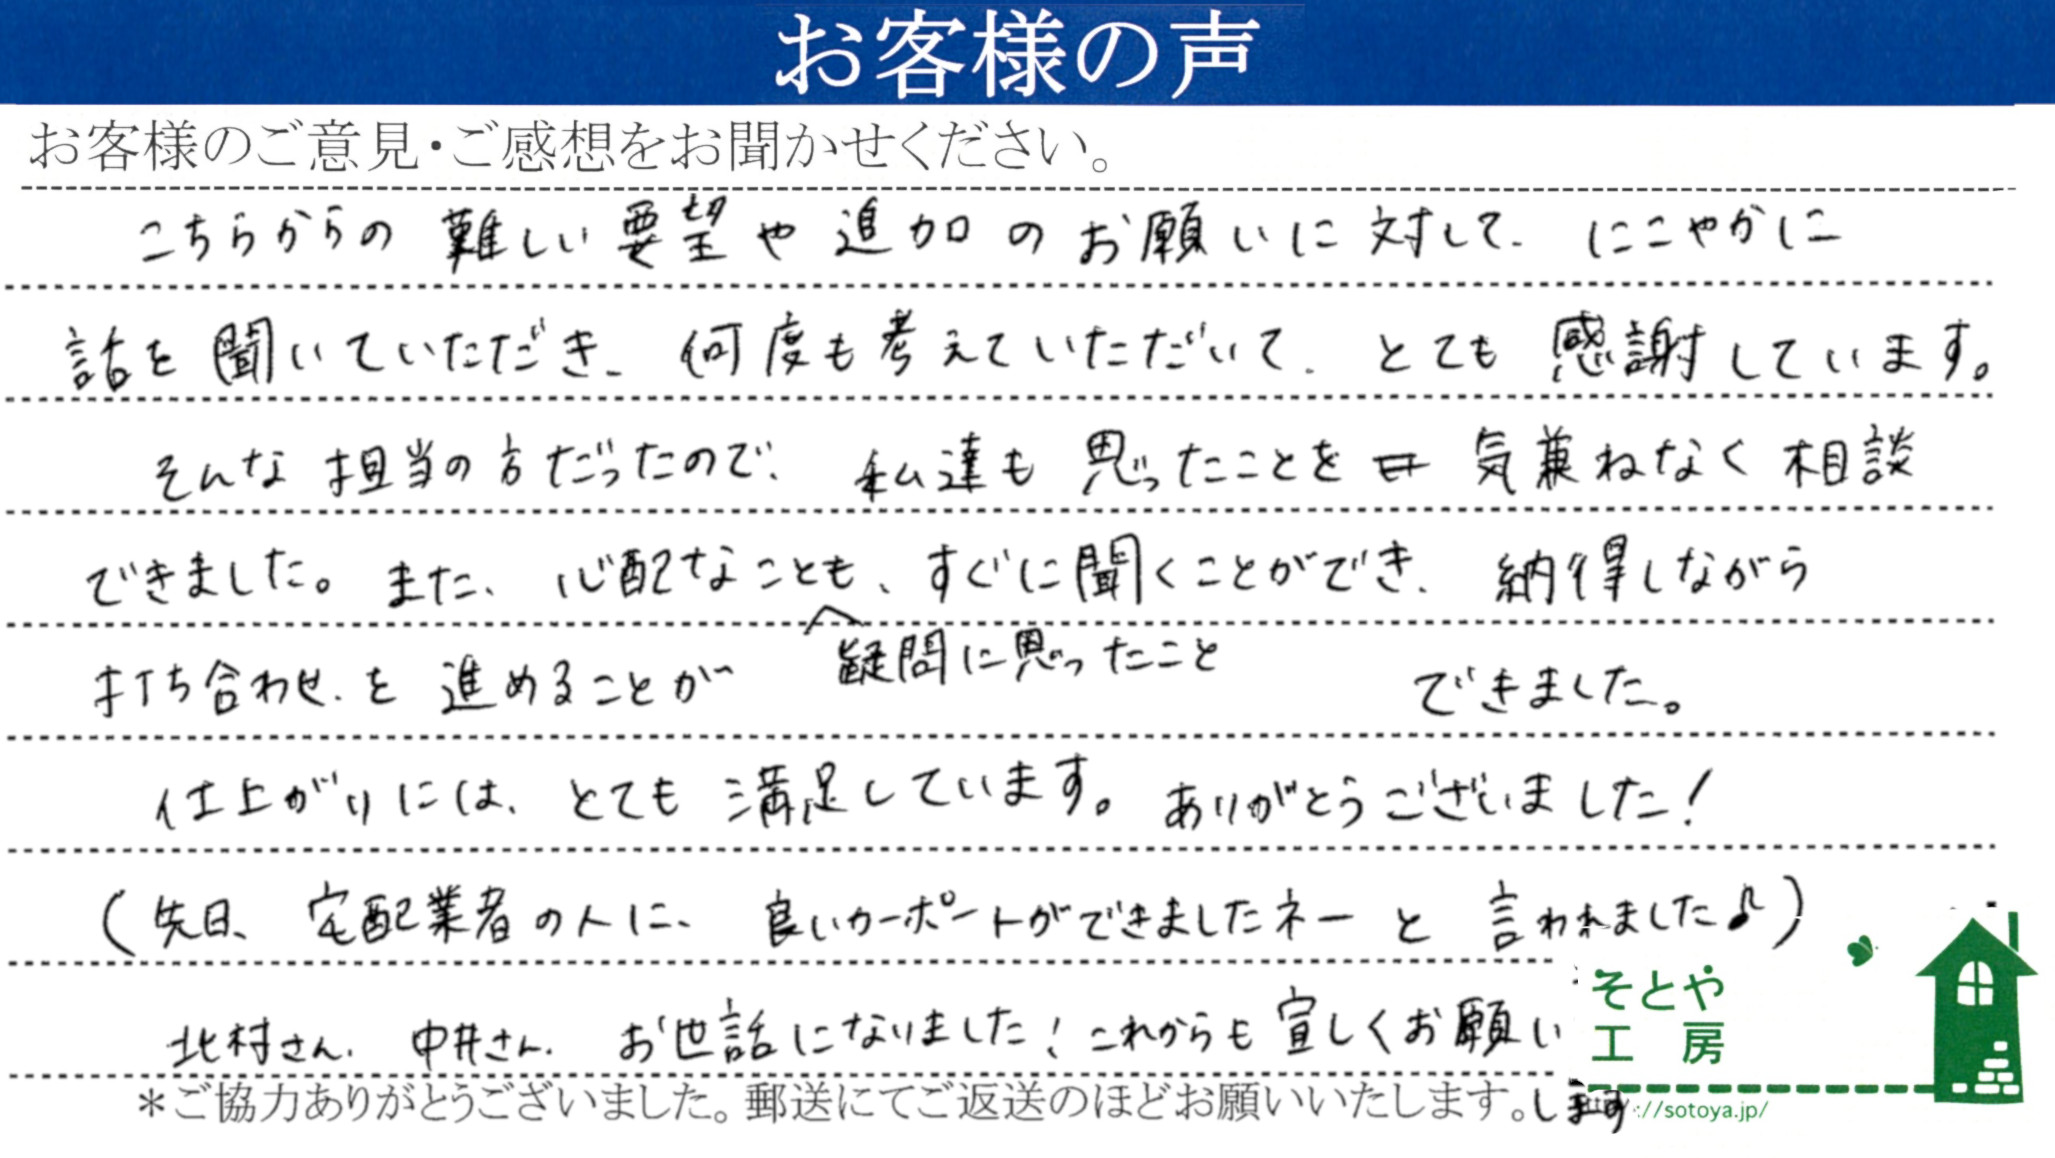 お客様の声
お客様のご意見・ご感想をお聞かせください。
こちらからの難しい要望や追加のお願いに対して、にこやかに
話を聞いていただき、何度も考えていただいて、とても感謝しています。
そんな担当の方だったので、私達も思ったことを気兼ねなく相談
できました。また、心配なことも、すぐに聞くことができ、納得しながら
疑問に思ったこと
打ち合わせを進めることが できました。
仕上がりには、とても満足しています。ありがとうございました!
(先日、宅配業者の人に、良いカーポートができましたネーと言われました♪)
北村さん、中井さん、お世話になりました!これからも宜しくお願い
します
*ご協力ありがとうございました。郵送にてご返送のほどお願いいたします。
そとや
工房
://sotoya.jp/